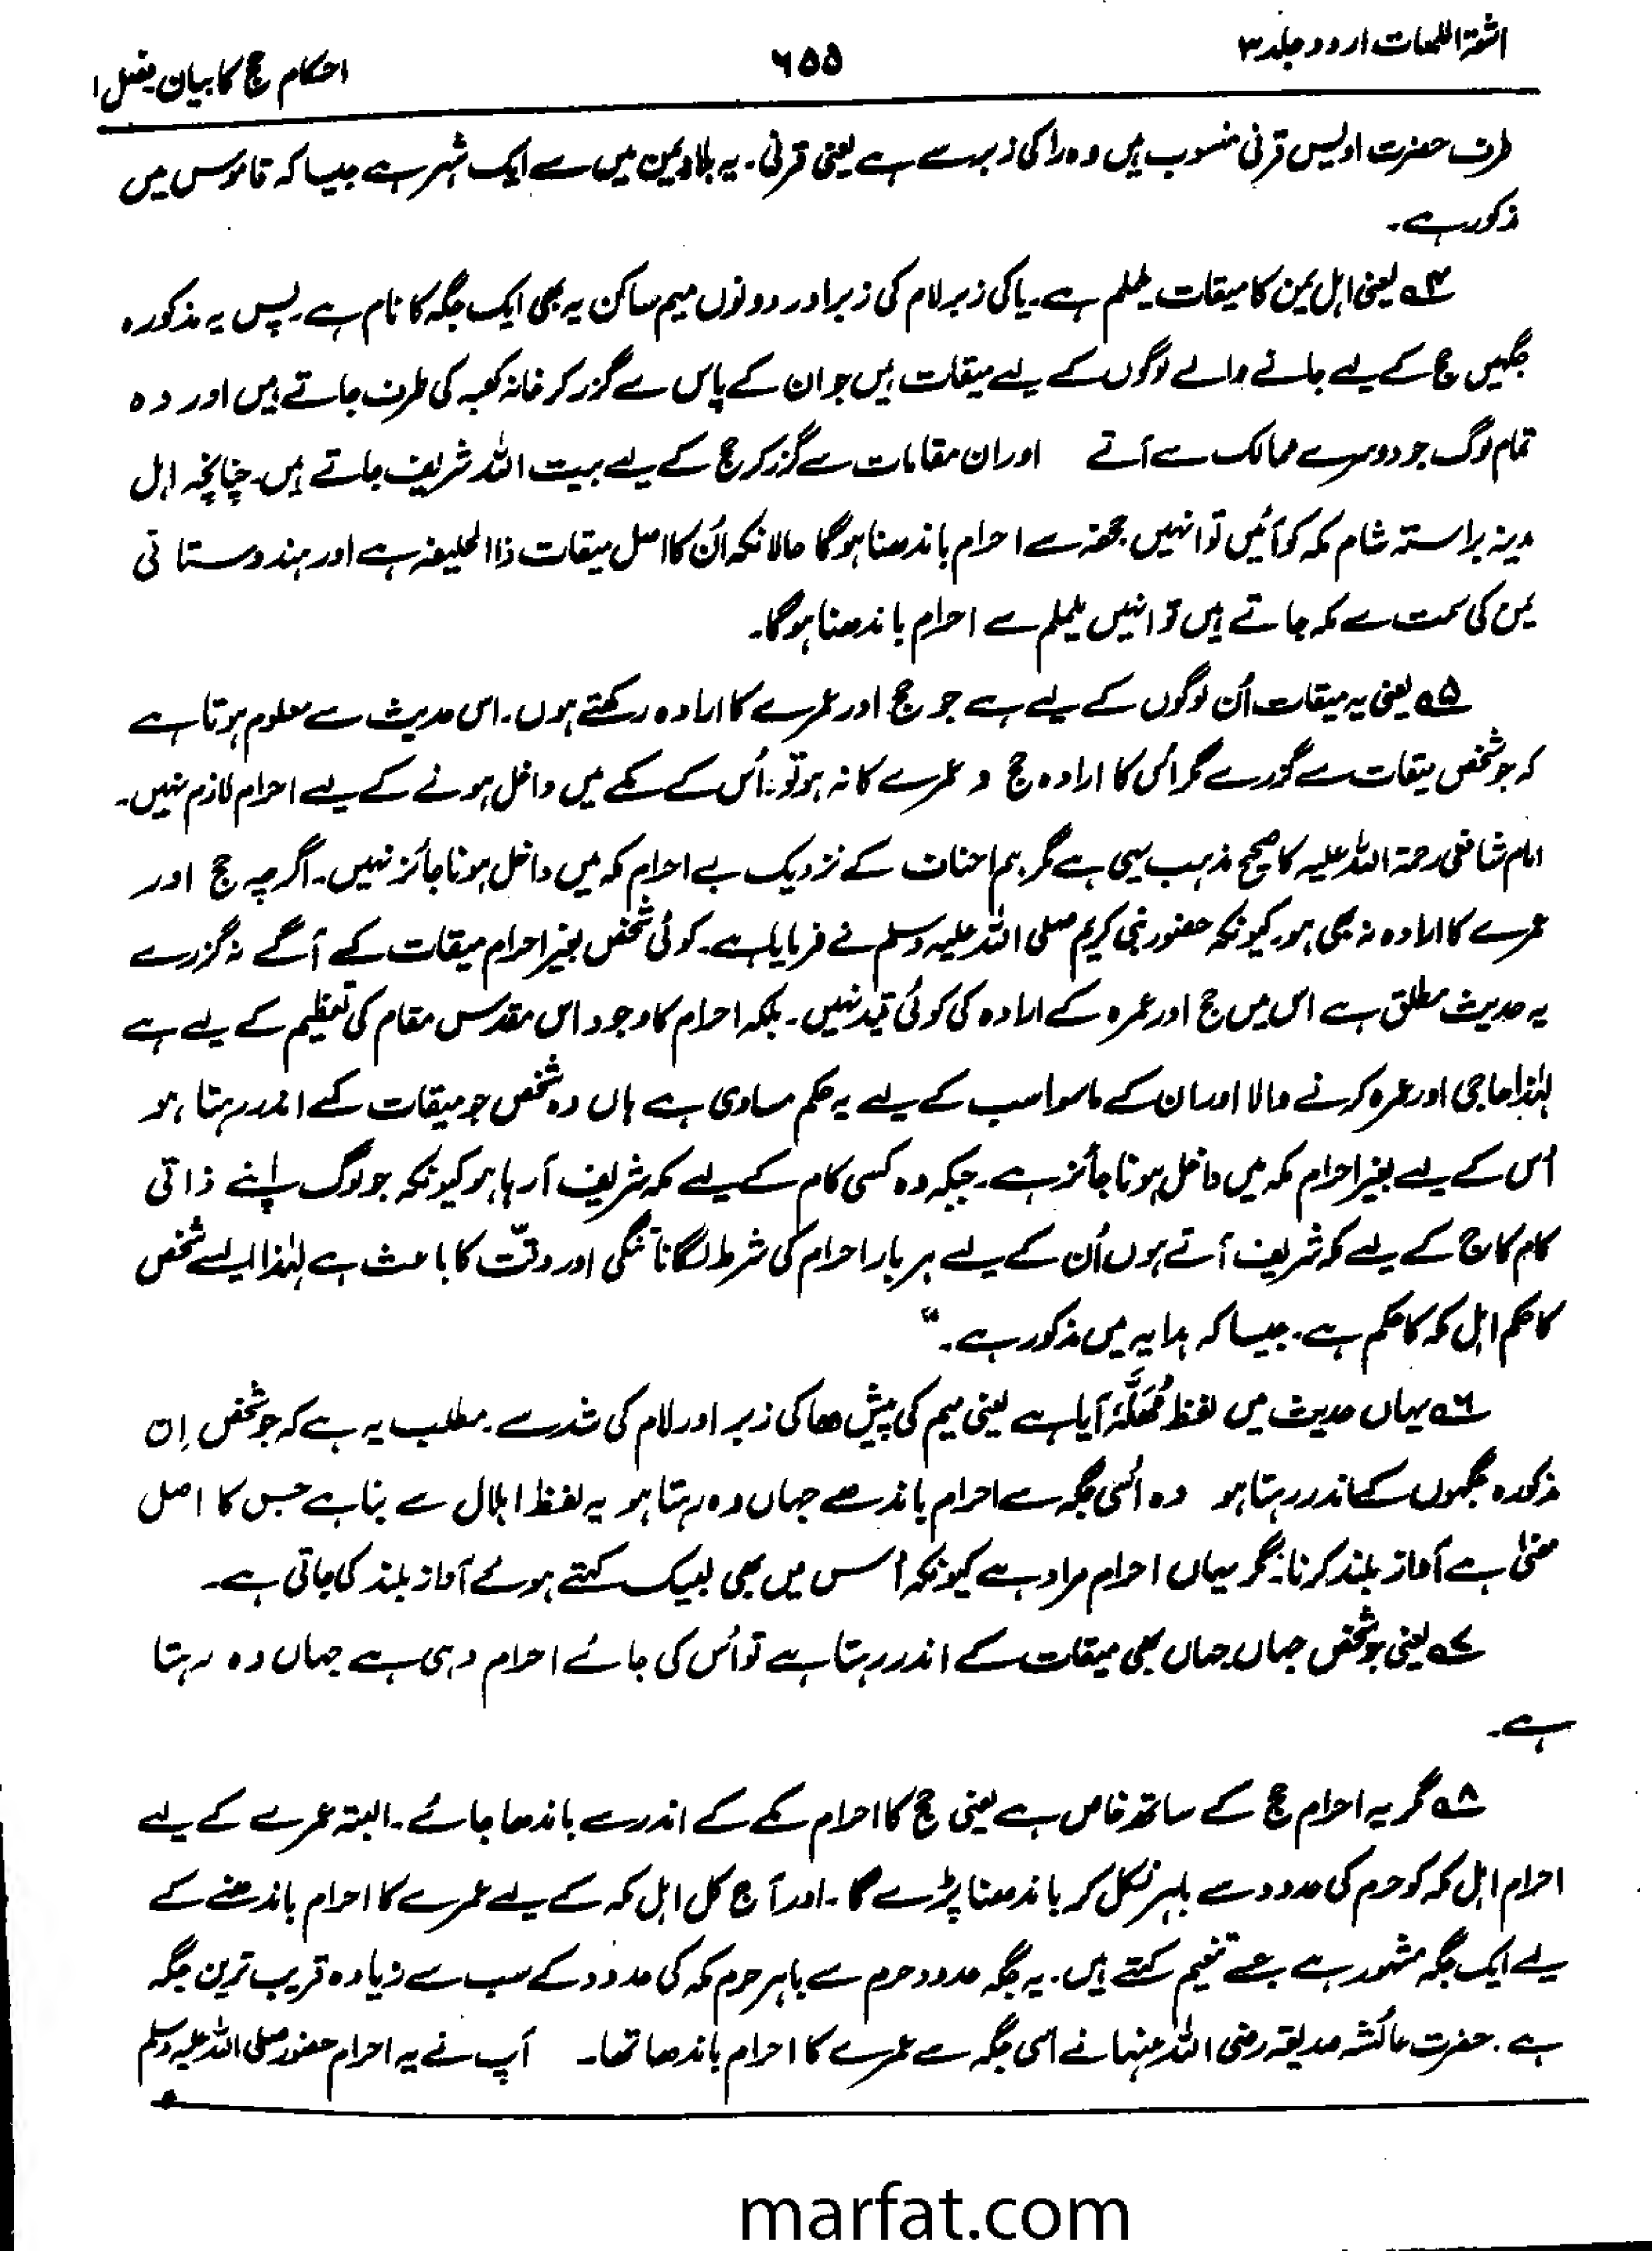 اشعۃ اللمعات اردو جلد ۳
۶۵۵
احکام حج کا بیان فصل ۱
طرف حضرت اویس قرنی منسوب ہیں وہ را کی زبر سے ہے یعنی قرنی۔ یہ بلاد یمن میں سے ایک شہر ہے جیسا کہ قاموس میں
ذکور ہے۔
۴ یعنی اہل یمن کا میقات یلملم ہے۔ یا کی زبر لام کی زبر اور دونوں میم ساکن یہ بھی ایک جگہ کا نام ہے۔ پس یہ مذکورہ
جگہیں حج کے لیے جانے والے لوگوں کے لیے میقات ہیں جو ان کے پاس سے گزر کر خانہ کعبہ کی طرف جاتے ہیں اور وہ
تمام لوگ جو دوسرے ممالک سے آتے اور ان مقامات سے گزر کر حج کے لیے بیت اللہ شریف جاتے ہیں۔ چنانچہ اہل
مدینہ براستہ شام مکہ کو آئیں تو انہیں جحفہ سے احرام باندھنا ہوگا حالانکہ اُن کا اصل میقات ذا الحلیفہ ہے اور ہندوستانی
یمن کی سمت سے مکہ جاتے ہیں تو انہیں یلملم سے احرام باندھنا ہوگا۔
۵ یعنی یہ میقات اُن لوگوں کے لیے ہے جو حج اور عمرے کا ارادہ رکھتے ہوں۔ اس حدیث سے معلوم ہوتا ہے
کہ جو شخص میقات سے گزرے مگر اس کا ارادہ حج و عمرے کا نہ ہو تو اُس کے مکے میں داخل ہونے کے لیے احرام لازم نہیں۔
امام شافعی رحمۃ اللہ علیہ کا صحیح مذہب یہی ہے مگر ہم احناف کے نزدیک بے احرام مکہ میں داخل ہونا جائز نہیں۔ اگرچہ حج اور
عمرے کا ارادہ نہ بھی ہو۔ کیونکہ حضور نبی کریم صلی اللہ علیہ وسلم نے فرمایا ہے۔ کوئی شخص بغیر احرام میقات کے آگے نہ گزرے
یہ حدیث مطلق ہے اس میں حج اور عمرہ کے ارادہ کی کوئی قید نہیں۔ بلکہ احرام کا وجود اس مقدس مقام کی تعظیم کے لیے ہے
لہٰذا حاجی اور عمرہ کرنے والا اور ان کے ماسوا سب کے لیے یہ حکم مساوی ہے ہاں وہ شخص جو میقات کے اندر رہتا ہو
اُس کے لیے بغیر احرام مکہ میں داخل ہونا جائز ہے۔ جبکہ وہ کسی کام کے لیے مکہ شریف آرہا ہو کیونکہ جو لوگ اپنے ذاتی
کام کاج کے لیے مکہ شریف آتے ہوں اُن کے لیے ہر بار احرام کی شرط لگانا تنگی اور دقّت کا باعث ہے لہٰذا ایسے شخص
کا حکم اہل مکہ کا حکم ہے۔ جیسا کہ ہدایہ میں مذکور ہے۔“
۶ یہاں حدیث میں لفظ مُھَلَّہٗ آیا ہے یعنی میم کی پیش ھا کی زبر اور لام کی شد سے۔ مطلب یہ ہے کہ جو شخص اِن
مذکورہ جگہوں کے اندر رہتا ہو وہ اُسی جگہ سے احرام باندھے جہاں وہ رہتا ہو یہ لفظ اہلال سے بنا ہے جس کا اصل
معنیٰ ہے آواز بلند کرنا۔ مگر یہاں احرام مراد ہے کیونکہ اُس میں بھی لبیک کہتے ہوئے آواز بلند کی جاتی ہے۔
۷ یعنی جو شخص جہاں جہاں بھی میقات کے اندر رہتا ہے تو اُس کی جائے احرام وہی ہے جہاں وہ رہتا
ہے۔
۸ مگر یہ احرام حج کے ساتھ خاص ہے یعنی حج کا احرام مکے کے اندر سے باندھا جائے۔ البتہ عمرے کے لیے
احرام اہل مکہ کو حرم کی حدود سے باہر نکل کر باندھنا پڑے گا۔ اور آج کل اہل مکہ کے لیے عمرے کا احرام باندھنے کے
لیے ایک جگہ مشہور ہے جسے تنعیم کہتے ہیں۔ یہ جگہ حدود حرم سے باہر حرم مکہ کی حدود کے سب سے زیادہ قریب ترین جگہ
ہے۔ حضرت عائشہ صدیقہ رضی اللہ عنہا نے اسی جگہ سے عمرے کا احرام باندھا تھا۔ آپ نے یہ احرام حضور صلی اللہ علیہ وسلم
marfat.com